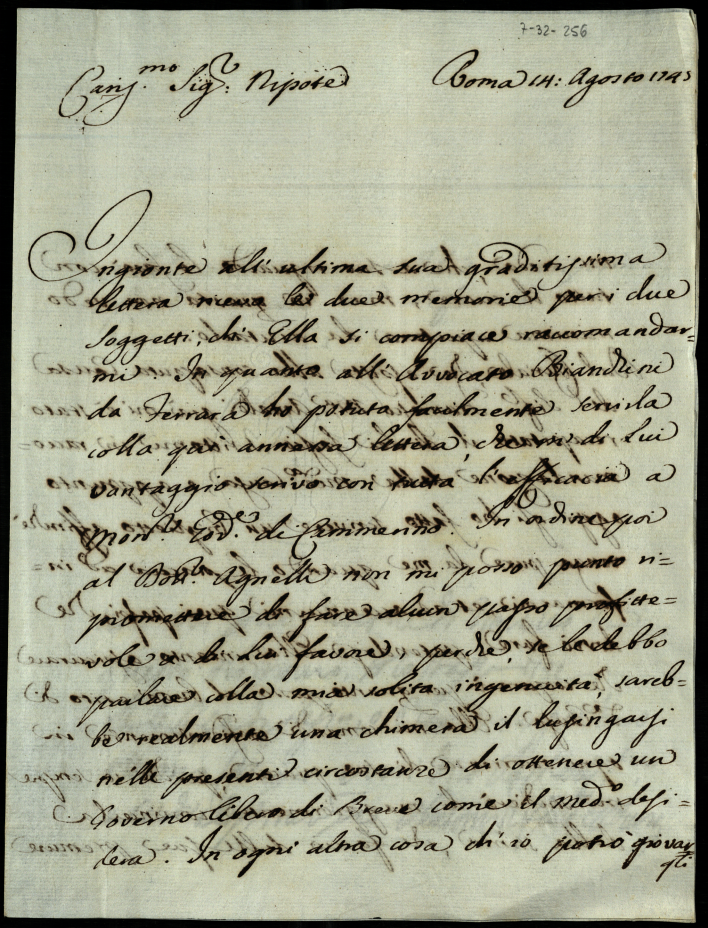 7-32-256
Cariss.mo Sig.r Nipote Roma 14: Agosto 174
Ingionte all' ultima sua graditissima
lettera ricevo le due memorie per i due
soggetti, ch' Ella si compiace raccomandar=
mi. In quanto all' Avvocato Bianchini
da Ferrara ho potuto facilmente servirla
colla qui annessa lettera, che di Lui
vantaggio scrivo con tutta l'efficacia a
Mon.re di Cammerino. In ordine poi
al Dott.r Agnelli non mi posso punto ri=
promettere di fare alcun passo profitte=
vole di Lui favore, perche, se le debbo
parlare colla mia solita ingenuità, sareb=
be realmente una chimera il lusingarsi
nelle presenti circostanze di ottenere un
Governo libero di Breve come il med.o desi=
dera. In ogni altra cosa ch' io potrò giovar
gli